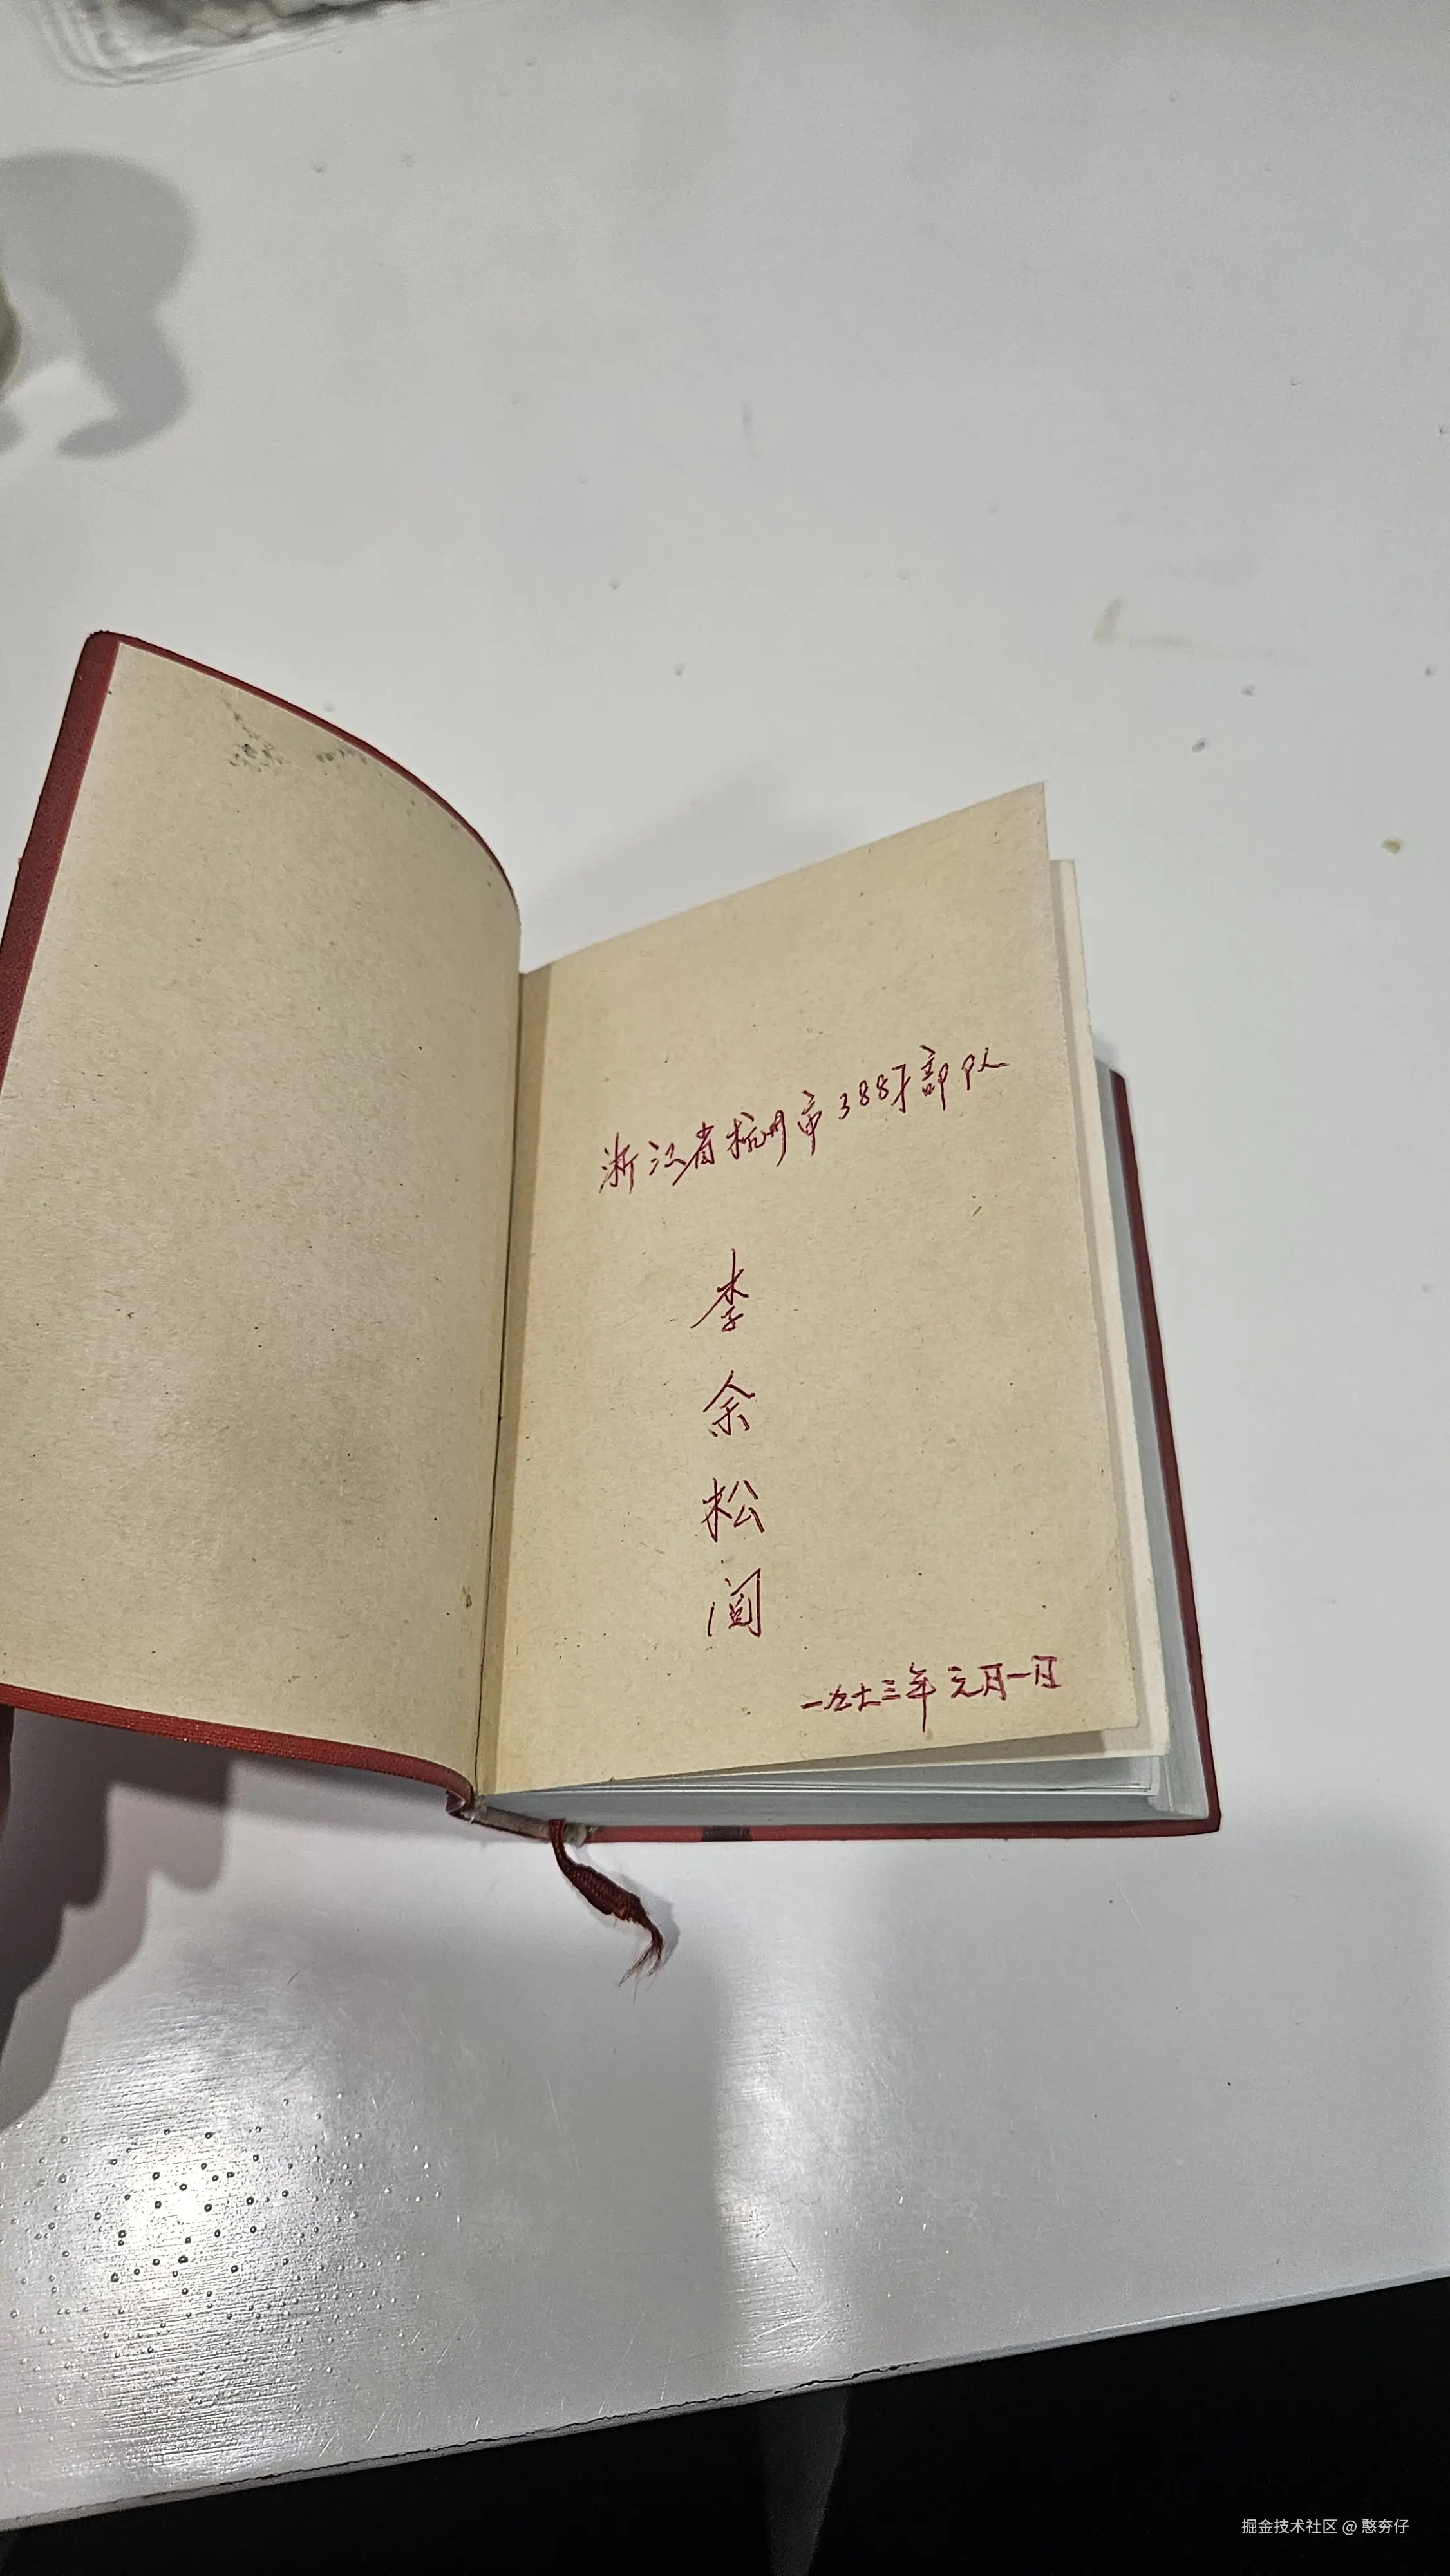 浙江省杭州市388部队
李
余
松
一九七三年元月一日
掘金技术社区 @ 憨夯仔